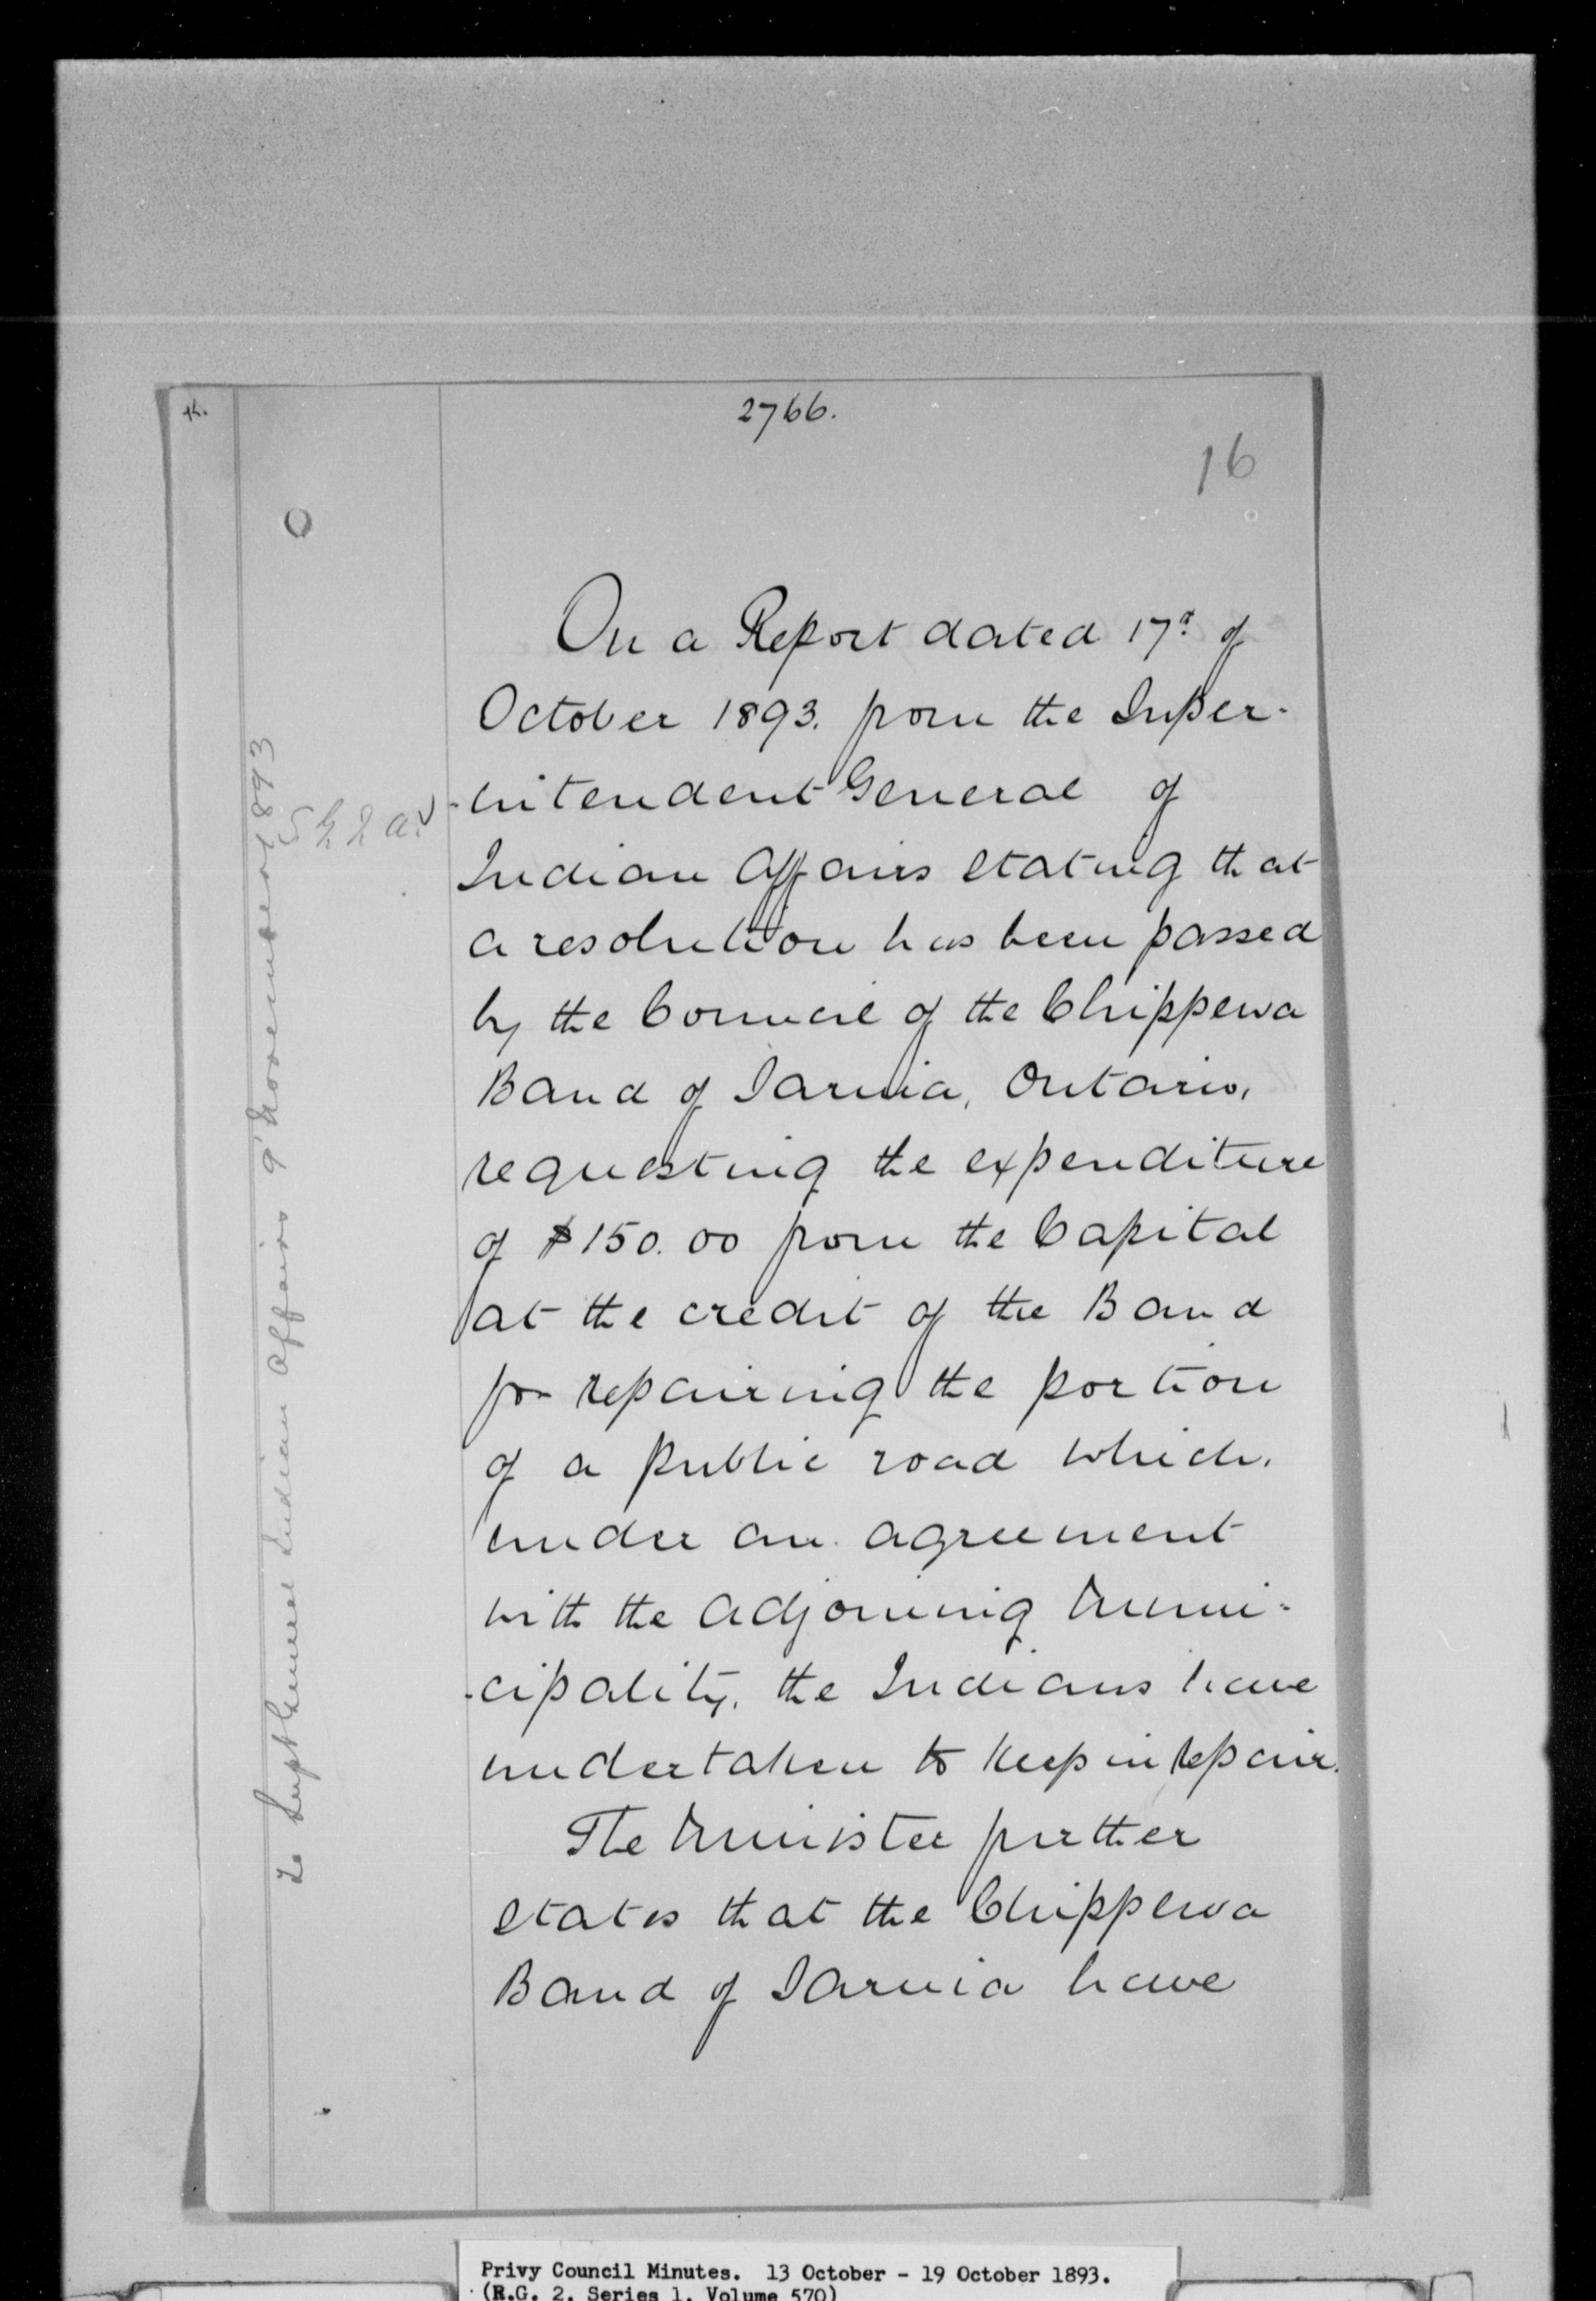 2766.
16
On a Report dated 17th of
October 1893. from the Super-
-intendent General of
Indian Affairs stating that
a resolution has been passed
by the Council of the Chippewa
Band of Sarnia, Ontario,
requesting the expenditure
of $150.00 from the Capital
at the credit of the Band
for repairing the portion
of a public road which,
under an agreement
with the adjoining Muni-
-cipality, the Indians have
undertaken to keep in repair.
The Minister further
states that the Chippewa
Band of Sarnia have
S G I A
To Supt General Indian Affairs 9' November 1893
Privy Council Minutes. 13 October - 19 October 1893.
(R.G. 2, Series 1, Volume 570)